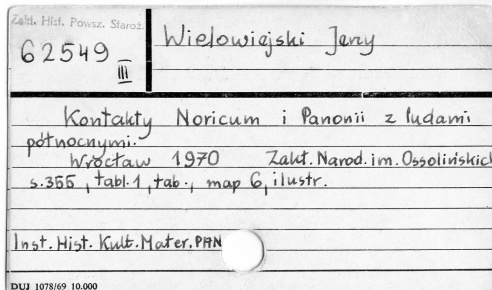 Zakł. Hist. Powsz. Staroż.
62549
III
Wielowiejski Jerzy
Kontakty Noricum i Panonii z ludami
północnymi.
Wrocław 1970 Zakł. Narod. im. Ossolińskich
s. 355, tabl. 1, tab., map 6, ilustr.
Inst. Hist. Kult. Mater. PAN
DUJ 1078/69 10.000